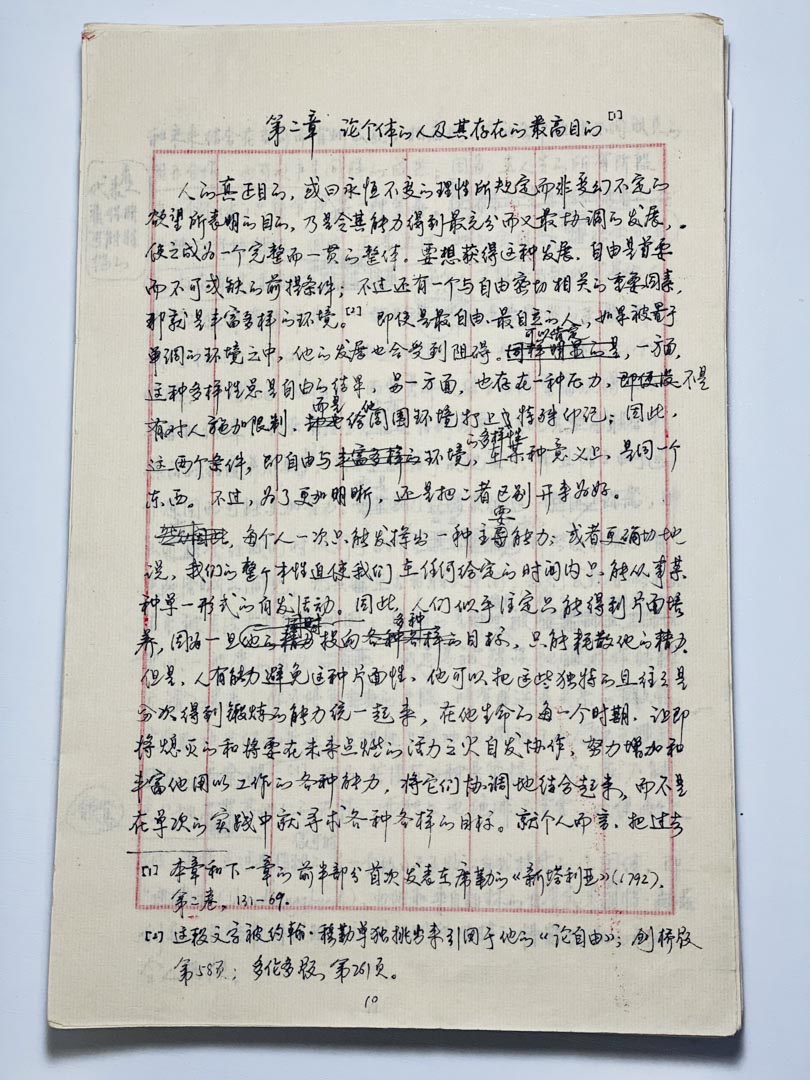 第二章 论个体的人及其存在的最高目的[1]
人的真正目的,或曰永恒不变的理性所规定而非变幻不定的
欲望所表明的目的,乃是令其能力得到最充分而又最协调的发展,
使之成为一个完整而一贯的整体。要想获得这种发展,自由是首要
而不可或缺的前提条件;不过还有一个与自由密切相关的重要因素,
那就是丰富多样的环境。[2] 即使是最自由、最自立的人,如果被置于
单调的环境之中,他的发展也会受到阻碍。可以断言,一方面,
这种多样性总是自由的结果,另一方面,也存在一种压力,不是
有对人施加限制,而是给他周围环境打上特殊印记;因此,
这两个条件,即自由与环境的多样性,在某种意义上,是同一个
东西。不过,为了更加明晰,还是把二者区别开来为好。
每个人一次只能发挥出一种主要能力;或者更确切地
说,我们的整个本性迫使我们在任何给定的时间内只能从事某
种单一形式的自发活动。因此,人们似乎注定只能得到片面培
养,因为一旦同时投向多种目标,只能耗散他的精力。
但是,人有能力避免这种片面性,他可以把这些独特的且往往是
分次得到锻炼的能力统一起来,在他生命的每一个时期,让即
将熄灭的和将要在未来点燃的活力之火自发协作,努力增加和
丰富他用以工作的各种能力,将它们协调地结合起来,而不是
在单次的实践中就寻求各种各样的目标。就个人而言,把过去
[1] 本章和下一章的前半部分首次发表在席勒的《新塔利亚》(1792),
第二卷,131-69.
[2] 这段文字被约翰·穆勒单独挑出来引用于他的《论自由》;剑桥版
第58页;多伦多版,第261页。
10